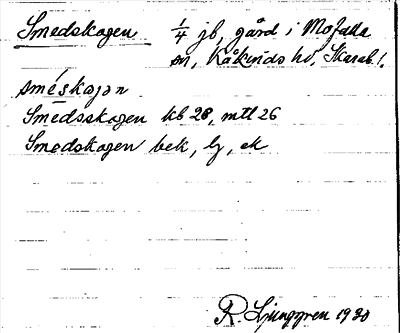 Smedskogen 1/4 jb, gård i Mofalla
sn, Kåkinds hd, Skarab. l.
sméskojən
Smedsskogen kb 28, mtl 26
Smedskogen bek, lj, ek
R. Ljunggren 1930